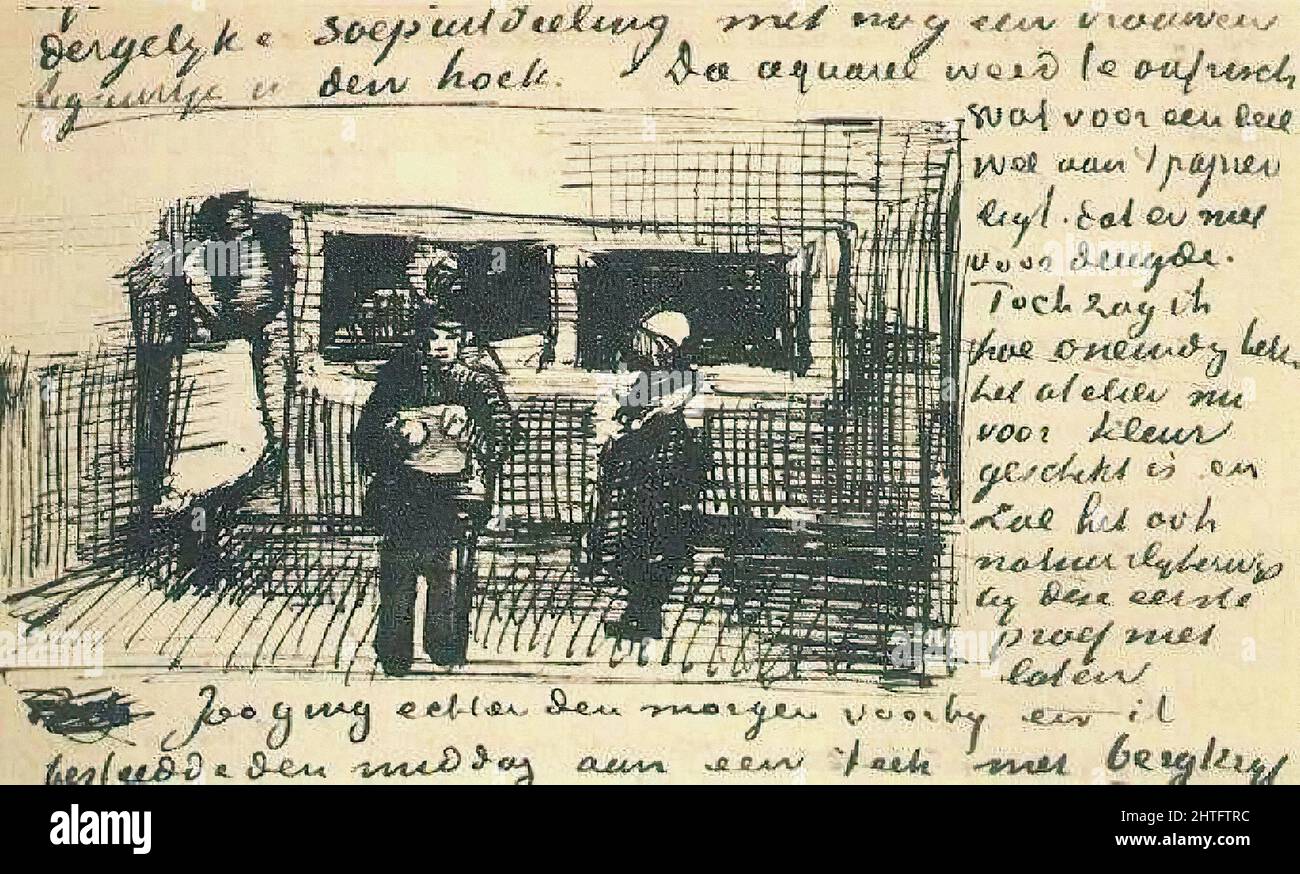 dergelyke soepuitdeeling met nog een vrouwen
figuurtje in den hoek. De aquarel werd te oufrisch
wat voor een deel
wel aan 't papier
ligt. dat er niet
voor deugde.
Toch zag ik
hoe oneindig beter
het atelier nu
voor kleur
geschikt is en
zal het ook
natuurlykerwys
by dese eerste
proef niet
laten
Zoo ging echter den morgen voorby en ik
besteedde den middag aan een teek met bergkryt
alamy
alamy
Image ID: 2HTFTRC
www.alamy.com